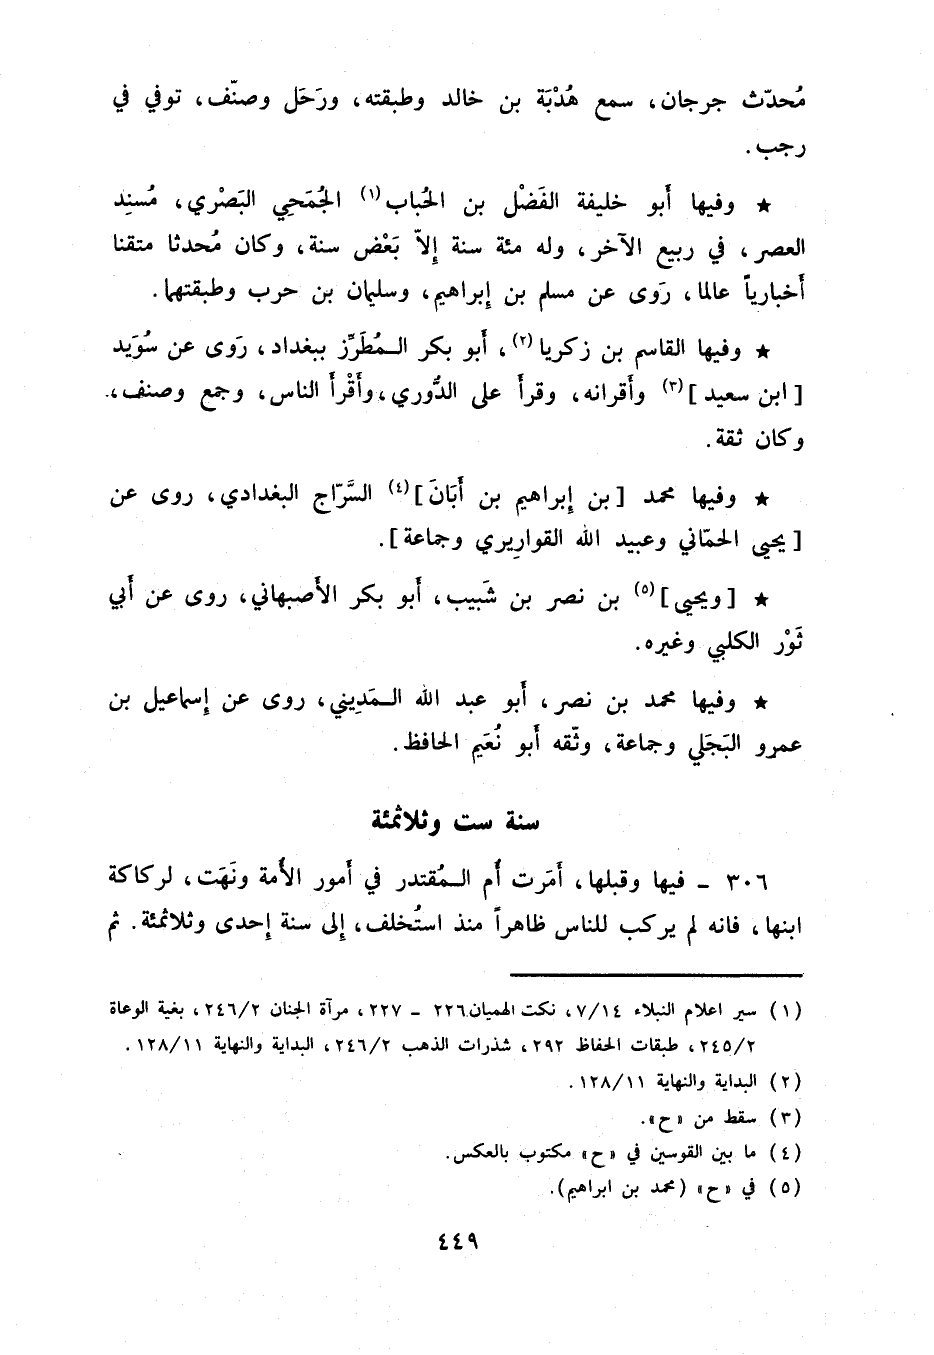 مُحدّث جرجان، سمع هُدْبَة بن خالد وطبقته، ورَحَل وصنّف، توفي في
رجب.
★ وفيها أَبو خليفة الفَضْل بن الحُباب(١) الجُمَحِي البَصْري، مُسنِد
العصر، في ربيع الآخر، وله مئة سنة إِلاّ بَعْض سنة، وكان مُحدثا متقنا
أَخبارياً عالما، رَوى عن مسلم بن إِبراهيم، وسليمان بن حرب وطبقتهما.
★ وفيها القاسم بن زكريا(٢)، أَبو بكر المُطَرِّز ببغداد، رَوى عن سُوَيد
[ ابن سعيد ](٣) وأَقرانه، وقرأَ على الدُّوري، وأَقْرأَ الناس، وجمع وصنف،
وكان ثقة.
★ وفيها محمد [بن إِبراهيم بن أَبَانَ](٤) السَّرّاج البغدادي، روى عن
[يحيى الحمّاني وعبيد الله القواريري وجماعة].
★ [ويحيى](٥) بن نصر بن شَبيب، أَبو بكر الأَصبهاني، روى عن أَبي
ثَوْر الكلبي وغيره.
★ وفيها محمد بن نصر، أَبو عبد الله المَدِيني، روى عن إِسماعيل بن
عمرو البَجَلي وجماعة، وثّقه أَبو نُعَيم الحافظ.
سنة ست وثلاثمئة
٣٠٦ – فيها وقبلها، أَمَرت أُم المُقتدر في أَمور الأُمة ونَهَت، لركاكة
ابنها، فانه لم يركب للناس ظاهراً منذ استُخلف، إِلى سنة إِحدى وثلاثمئة. ثم
(١) سير اعلام النبلاء ٧/١٤، نكت الهميان ٢٢٦ – ٢٢٧، مرآة الجنان ٢٤٦/٢، بغية الوعاة
٢٤٥/٢، طبقات الحفاظ ٢٩٢، شذرات الذهب ٢٤٦/٢، البداية والنهاية ١٢٨/١١.
(٢) البداية والنهاية ١٢٨/١١.
(٣) سقط من «ح».
(٤) ما بين القوسين في «ح» مكتوب بالعكس.
(٥) في «ح» (محمد بن ابراهيم).
٤٤٩